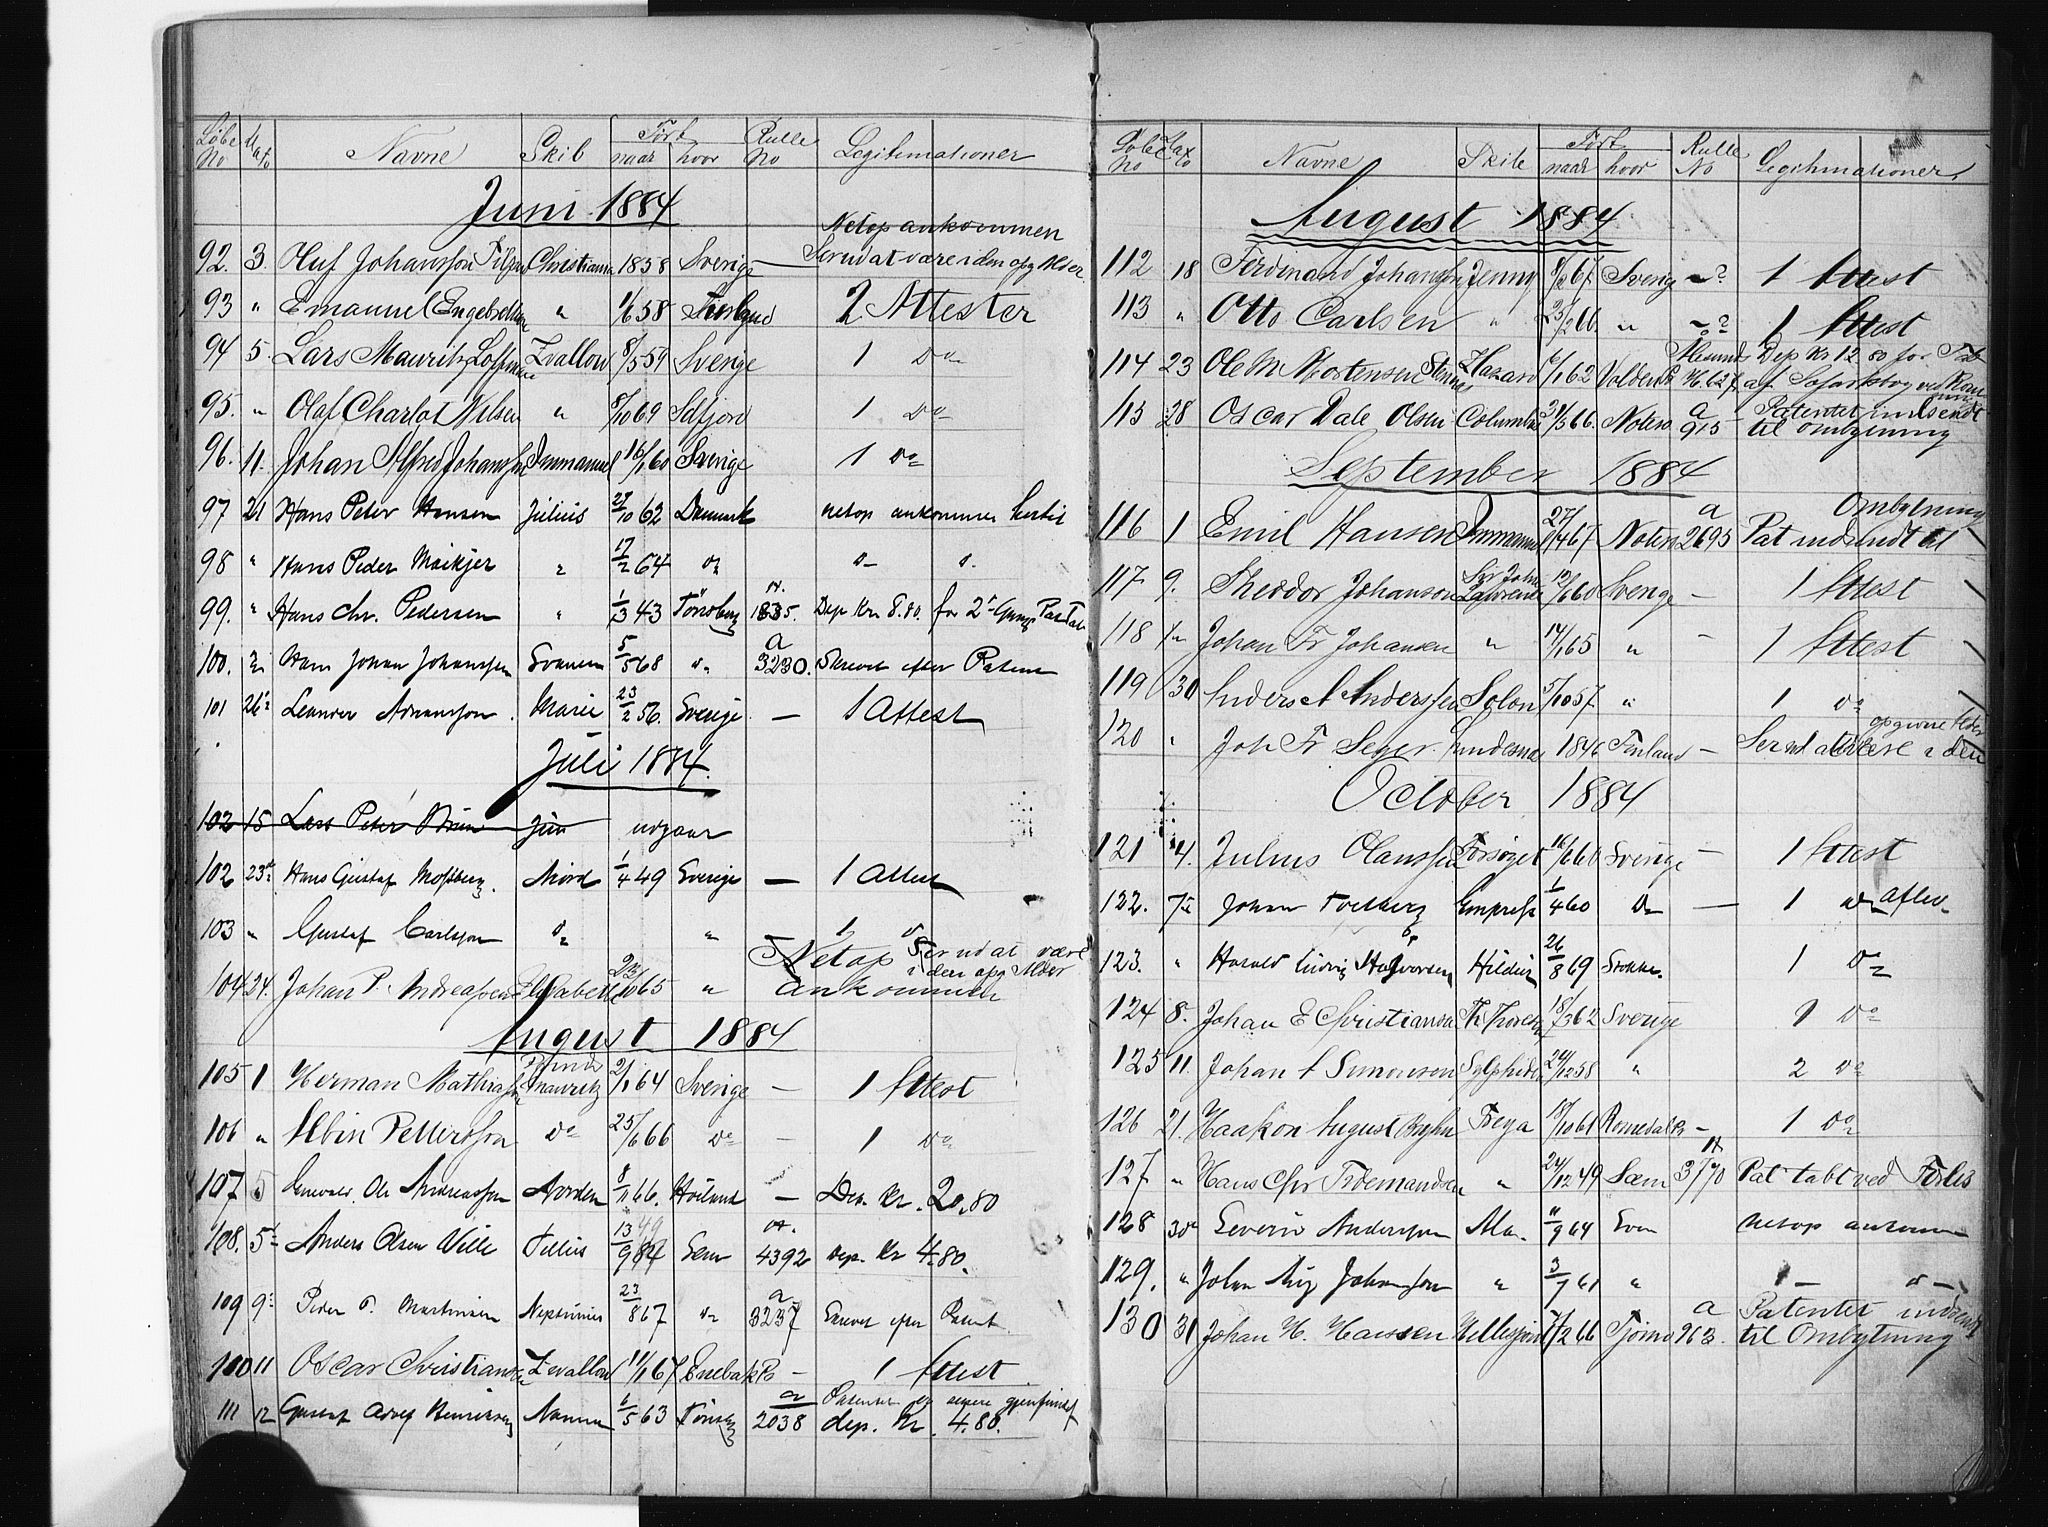 Løbe No Dato Navne Skib Født naar hvor Rulle No Legitimationer
Juni 1884
Netop ankommen
92. 3. Oluf Johansson Christiania 1858 Sverige Ser ud at være i den opg Alder
93 " Emanuel Engebretsen " 1/6 58 2 Attester
94 5. Lars Mauritz Zvallow 8/5 59 Sverige 1 Do
95. " Olaf Charlot Nilsen " 8/10 69 Selfjord 1 Do
96. 11. Johan Alfred Johansson Immanuel 16/1 60 Sverige 1 Do
97 21 Hans Peter Hansen Julius 29/10 62 Danmark netop ankommen hertil
98 " Hans Peder " 17/2 64 Do
99. " Hans Chr. Pedersen " 1/3 43 Tönsberg A. 1835. Dep Kr. 8.80. for 2den Gangs Pat Tab
100. Hans Johan Johanssen Svanen 5/5 68 Do a 3230. Skrevet efter Patent
101 26de Leander Adriansson. Marie 23/2 56. Sverige — 1 Attest
Juli 1884.
102 15 Lars Peter udgaar
102 23de Hans Gustaf Mossberg. Nord 1/4 49 Sverige — 1 Attest
103 " Gustaf Carlsson Do " 1 Do
104 24. Johan P. Andreassen Elisabeth 65 " Netop ankommen Ser ud at være i den opg Alder
August 1884
105 1 Herman Mathiassen Mauritz 2/1 64 Sverige — 1 Attest
106 " Albin Pettersson Do 25/6 66 Do — 1 Do
107 5 Ole Andreassen Norden 8/11 66. — Dep. Kr. 20.80
108. 5te Anders Olsen Ville Tellus 13/9 84 49 Sem A. 4392 Dep. Kr 4.80.
109 9de Peder O. Martinsen Neptunus 23/8 67 Do a 3237 Skrevet efter Patent.
100 11 Oscar Christiansen Zvallow 11/1 67 Enebak P — 1 Attest
111 12 Gustaf Adolf Henriksen Nanna 6/5 63 Tönsberg a 2038 Patentet og senere gjenfundet
dep. Kr. 4.80.
Løbe No Dato Navne Skib Født naar hvor Rulle No Legitimationer
August 1884.
112 18 Ferdinand Johansson Jenny 67 Sverige —? 1 Attest
113 " Otto Carlsen " 23/2 66. " —? 1 Attest
114 23 Ole M Mortensen Stennes Hazard 6/1 62 Volden 627 Dep Kr 12 80 for Tab
af Søfartsbog ved
115 28 Oscar Dale Olsen Columbus 31/3 66. Notero a 915 Patentet indsendt
til ombytning
September 1884
116 1 Emil Hansen Immanuel 27/4 67 Notero a 2695 Pat indsendt til Ombytning
117. 9. Theodor Johanson Sir John Lawrence 12/6 60 Sverige — 1 Attest
118 Johan Fr Johansen " 14/1 65 " — 1 Attest
119 30 Anders A Anderssen Solon 5/10 57 " 1 Do
120 " Joh Fr Seger. 1846 Finland — Ser ud at være i den opgivne Alder
October 1884
121 4. Julius Olanssen Forsøget 16/6 60 Sverige — 1 Attest
122. 7de Johan Torsberg Empress 1/4 60 Do — 1 Do Aflev
123. " Harald Ludvig Halvorsen Hildur 26/8 69 Stokke. 1 Do
124 8. Johan E Christiansen Th Thoresen 18/3 62 Sverige 1 Do
125 11. Johan A Simonsen Sylphiden 24/12 58 " 2 Do
126 21. Haakon August Bryhn Freya 18/10 61 Romedal P — 1 Do
127. " Hans Chr Fr " 24/12 49 Sæm A 3770 Pat tabt ved Forlis
128 30 Severin Anderssen Alma. 11/9 64 Sven netop ankommen
129. " Johan Aug Johansson " 3/7 61 " — " —
130 31 Johan H. Hansen 7/2 66 Tjømø a 963. Patentet indsendt
til Ombytning